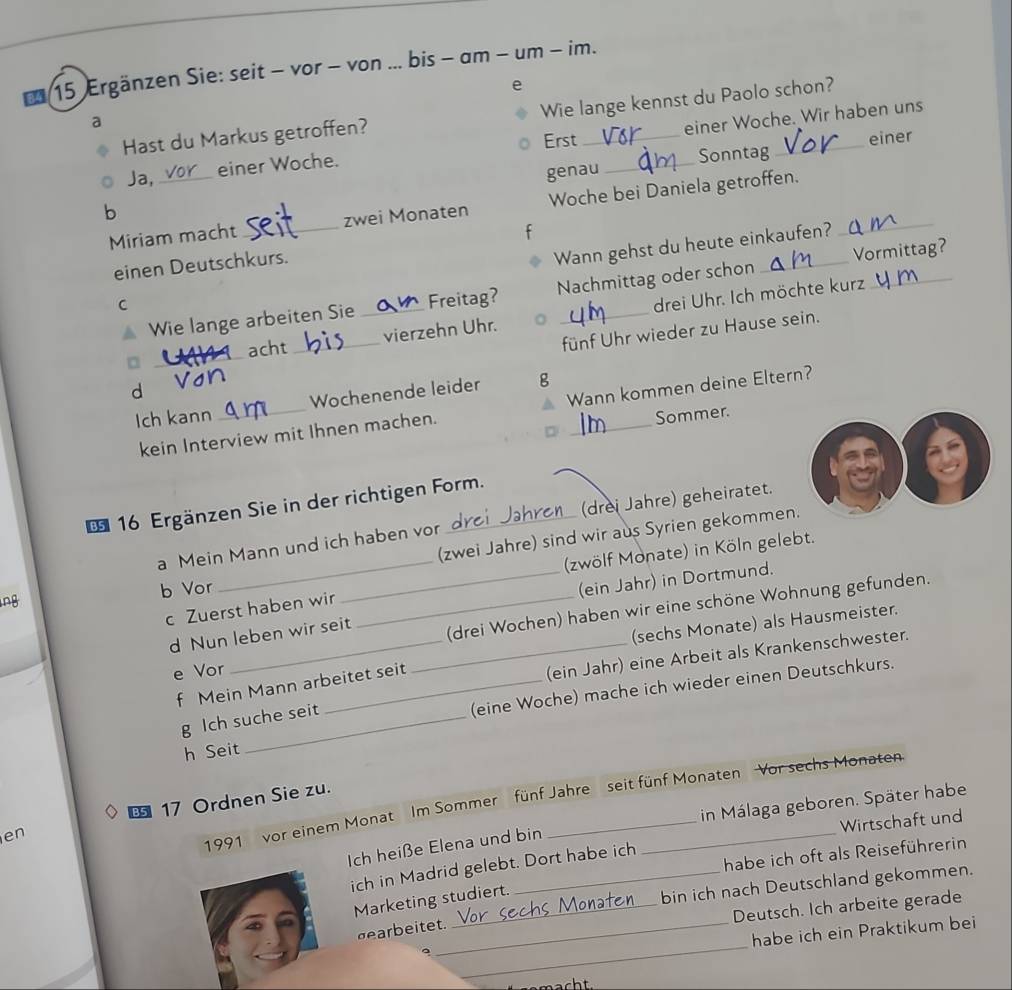 B4 15 Ergänzen Sie: seit – vor – von ... bis – am – um – im.
a
Hast du Markus getroffen?
Ja, vor einer Woche.
b
Miriam macht seit zwei Monaten
einen Deutschkurs.
c
Wie lange arbeiten Sie am Freitag?
um acht bis vierzehn Uhr.
von
d
Ich kann am Wochenende leider
kein Interview mit Ihnen machen.
e
Wie lange kennst du Paolo schon?
Erst vor einer Woche. Wir haben uns
genau am Sonntag vor einer
Woche bei Daniela getroffen.
f
Wann gehst du heute einkaufen? am
Nachmittag oder schon am Vormittag?
um drei Uhr. Ich möchte kurz um
fünf Uhr wieder zu Hause sein.
g
Wann kommen deine Eltern?
Im Sommer.
B5 16 Ergänzen Sie in der richtigen Form.
a Mein Mann und ich haben vor drei Jahren (drei Jahre) geheiratet.
b Vor (zwei Jahre) sind wir aus Syrien gekommen.
c Zuerst haben wir (zwölf Monate) in Köln gelebt.
d Nun leben wir seit (ein Jahr) in Dortmund.
e Vor (drei Wochen) haben wir eine schöne Wohnung gefunden.
f Mein Mann arbeitet seit (sechs Monate) als Hausmeister.
g Ich suche seit (ein Jahr) eine Arbeit als Krankenschwester.
h Seit (eine Woche) mache ich wieder einen Deutschkurs.
B5 17 Ordnen Sie zu.
1991 vor einem Monat Im Sommer fünf Jahre seit fünf Monaten Vor sechs Monaten
Ich heiße Elena und bin in Málaga geboren. Später habe
ich in Madrid gelebt. Dort habe ich Wirtschaft und
Marketing studiert. habe ich oft als Reiseführerin
gearbeitet. Vor sechs Monaten bin ich nach Deutschland gekommen.
Deutsch. Ich arbeite gerade
habe ich ein Praktikum bei
macht.
ng
en